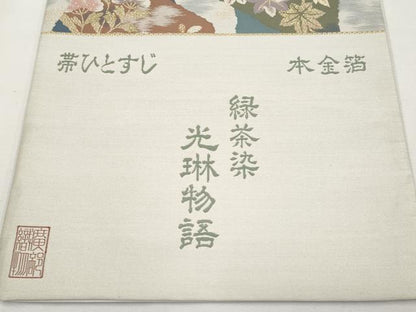 帯ひとすじ
本金箔
緑茶染
光琳物語